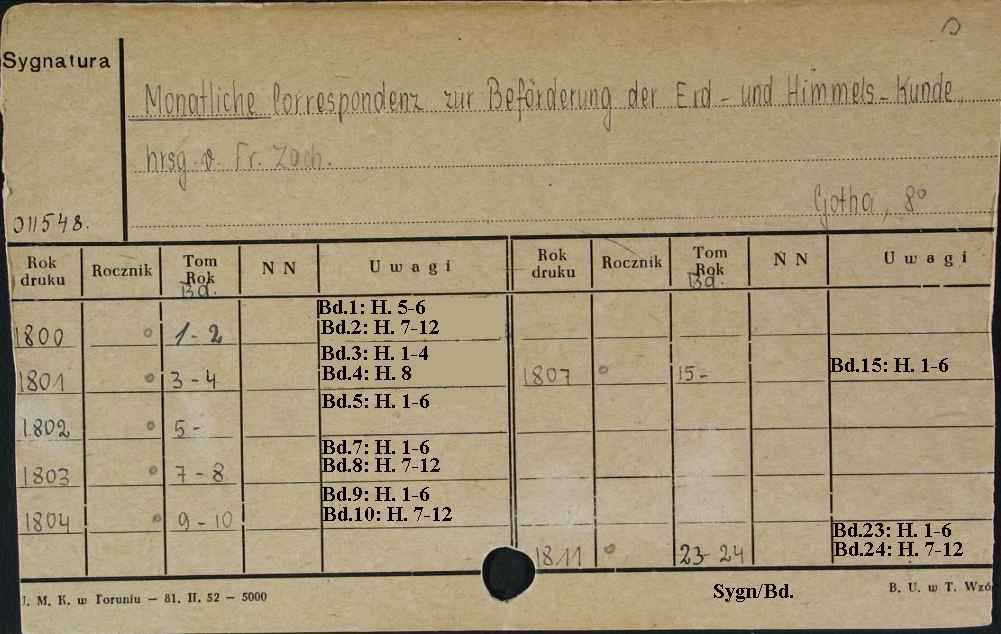 Sygnatura
Monatliche Correspondenz zur Beförderung der Erd- und Himmels-Kunde,
hrsg. v. Fr. Zach.
Gotha, 8°
011548.
Rok druku Rocznik Tom Rok Bd. N N Uwagi Rok druku Rocznik Tom Rok Bd. N N Uwagi
1800 ° 1-2 Bd.1: H. 5-6
Bd.2: H. 7-12
1801 ° 3-4 Bd.3: H. 1-4
Bd.4: H. 8
1802 ° 5- Bd.5: H. 1-6
1803 ° 7-8 Bd.7: H. 1-6
Bd.8: H. 7-12
1804 ° 9-10 Bd.9: H. 1-6
Bd.10: H. 7-12
1807 ° 15- Bd.15: H. 1-6
1811 ° 23-24 Bd.23: H. 1-6
Bd.24: H. 7-12
Sygn/Bd.
U. M. K. w Toruniu — 81. II. 52 — 5000
B. U. w T. Wzó